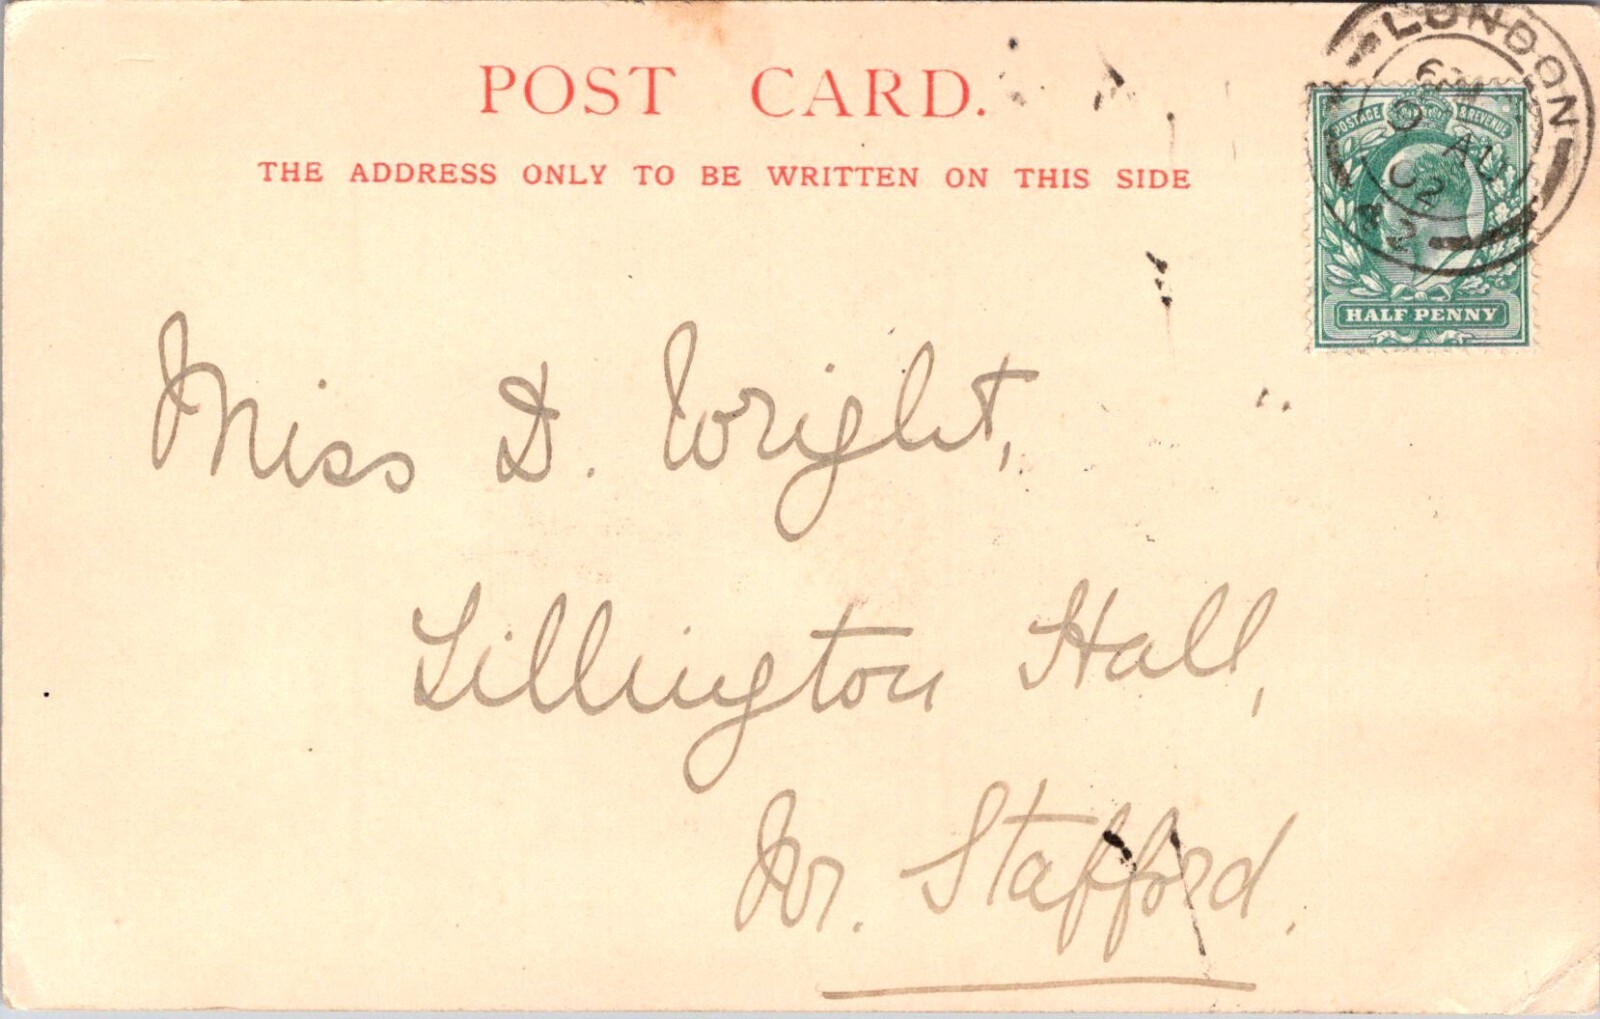 POST CARD.
THE ADDRESS ONLY TO BE WRITTEN ON THIS SIDE
LONDON
AU
02
POSTAGE & REVENUE
HALF PENNY
Miss D. Wright,
Lillington Hall,
Nr. Stafford.